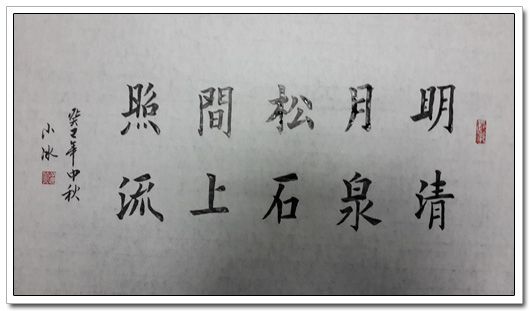 明月松間照
清泉石上流
癸巳年中秋
小冰